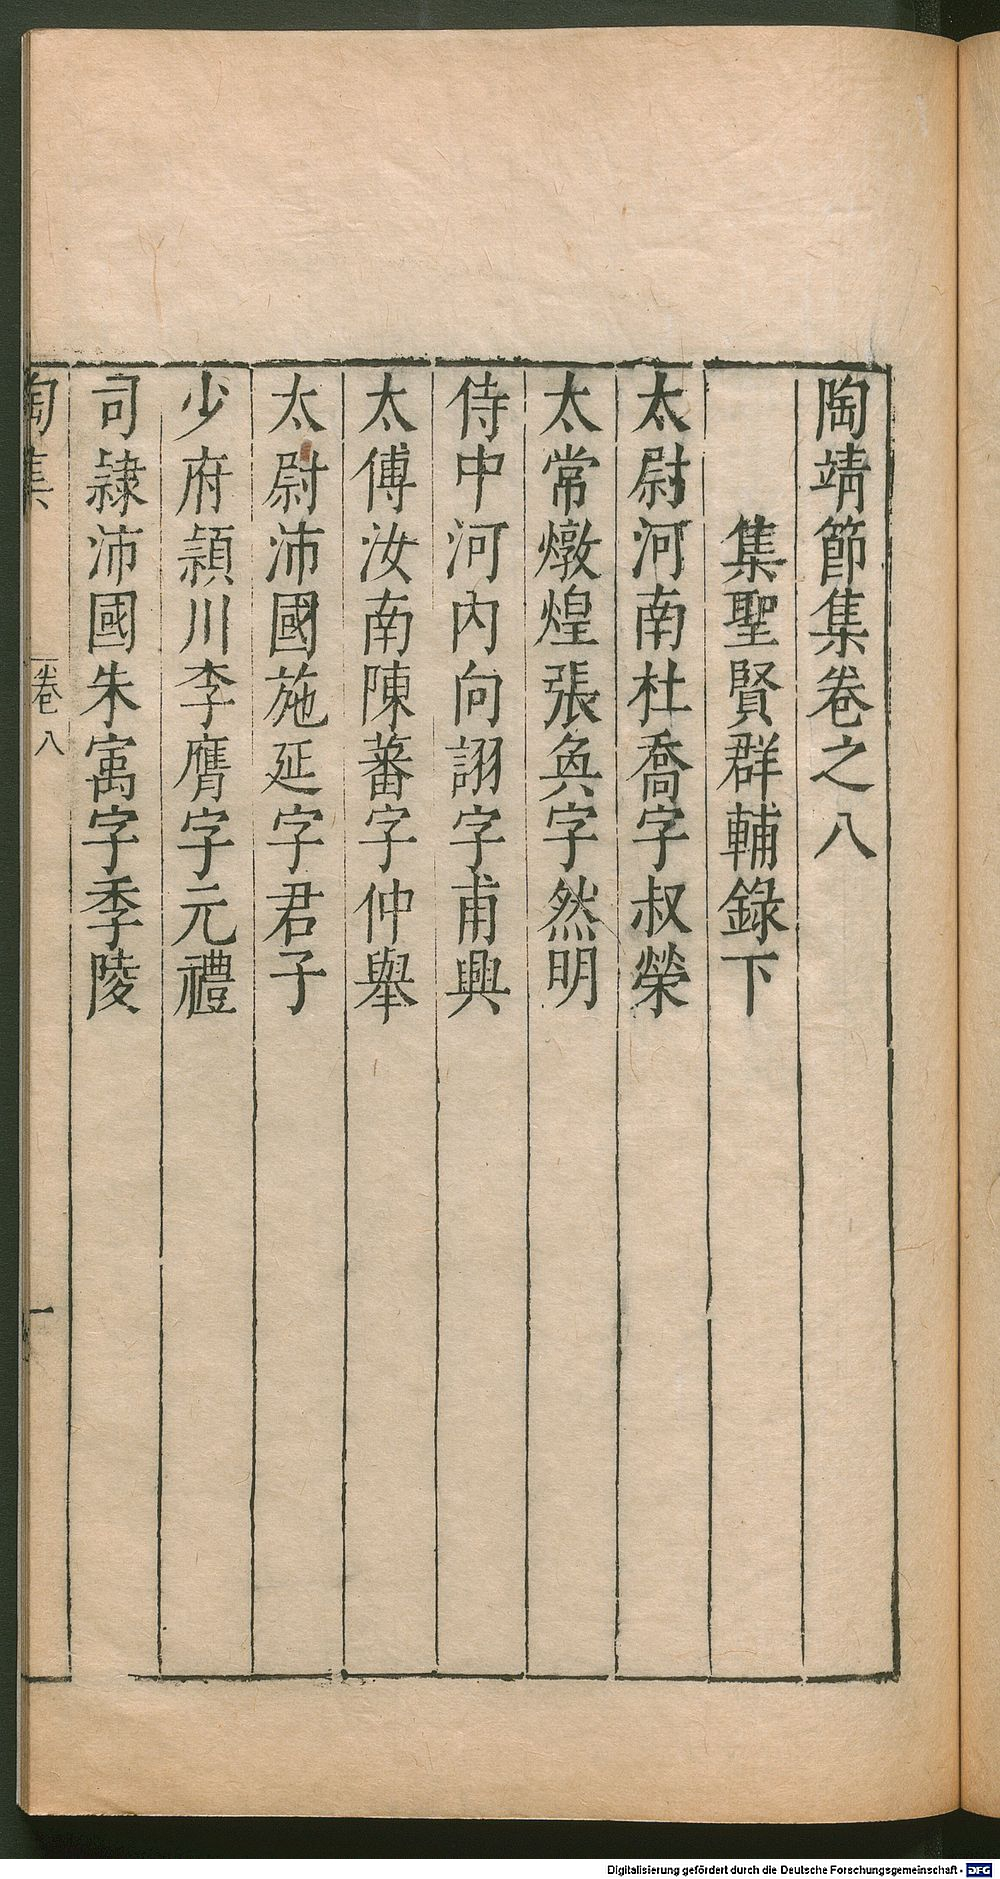 陶靖節集卷之八
集聖賢群輔錄下
太尉河南杜喬字叔榮
太常燉煌張奐字然明
侍中河內向詡字甫興
太傅汝南陳蕃字仲舉
太尉沛國施延字君子
少府潁川李膺字元禮
司隷沛國朱㝢字季陵
陶集
卷八
一
Digitalisierung gefördert durch die Deutsche Forschungsgemeinschaft - DFG